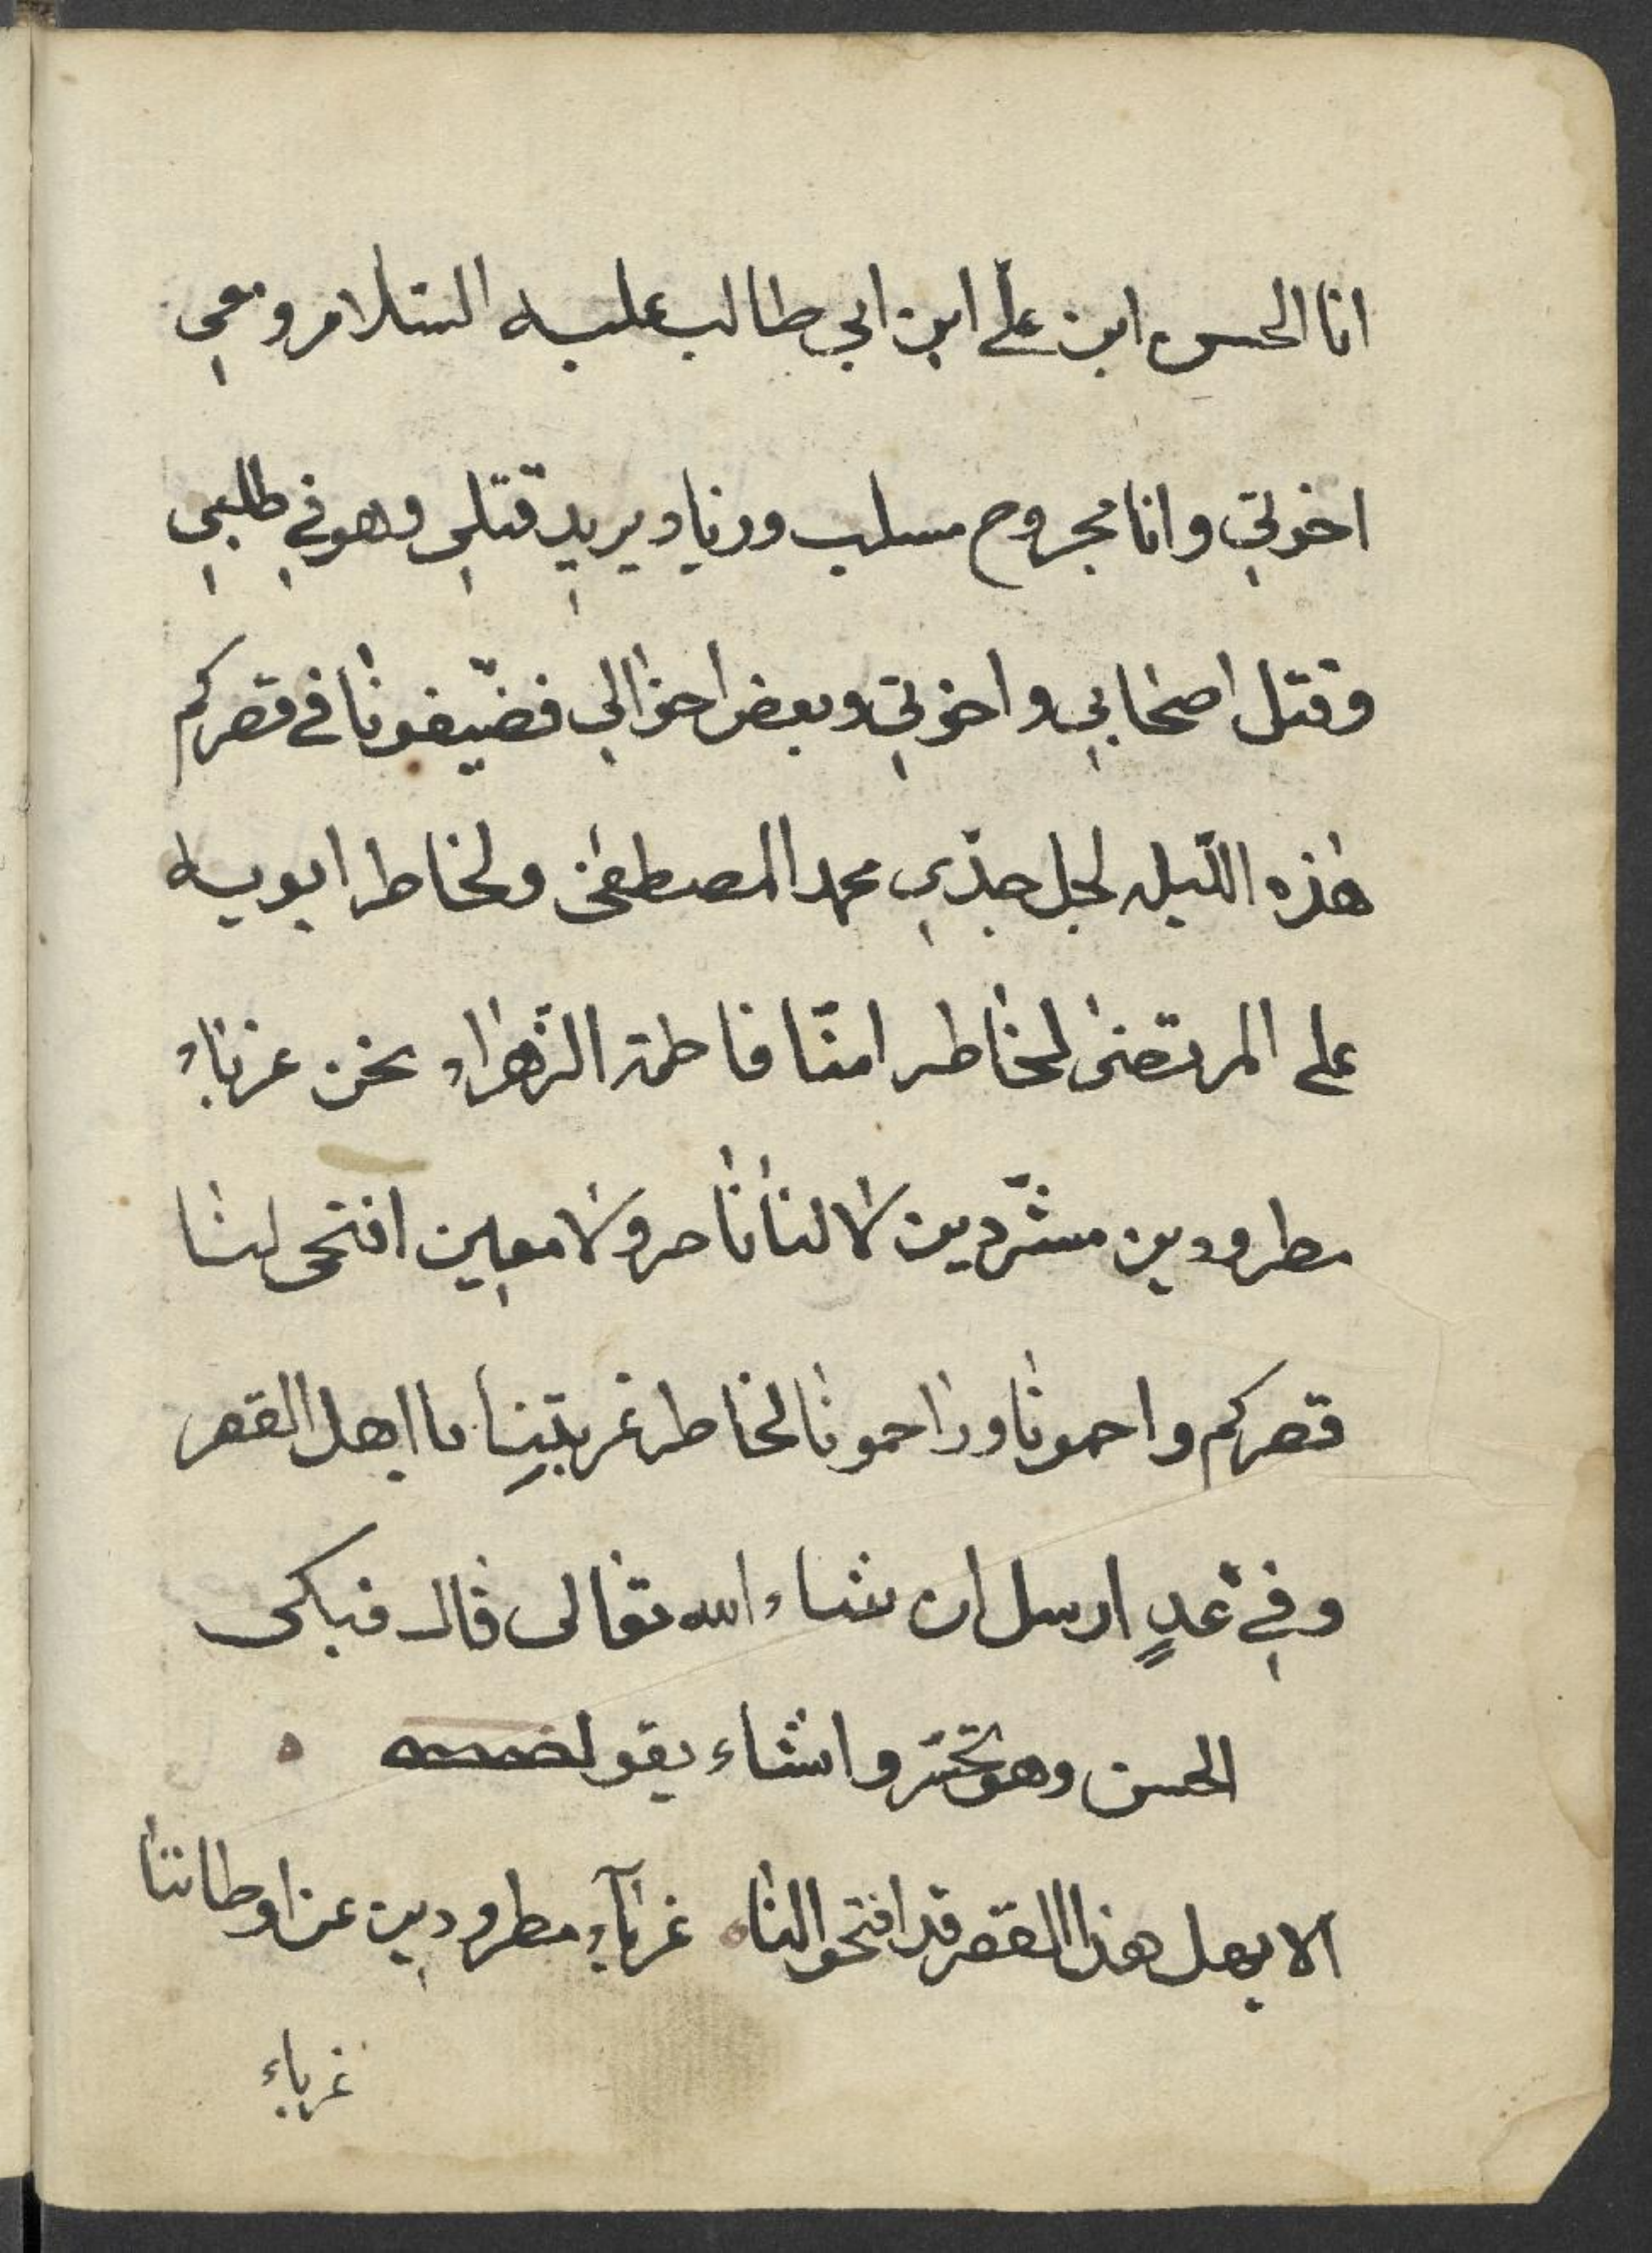 انا الحسن ابن علي ابن ابي طالب عليه السلام ومعي
اخوتي وانا مجروح مسلب وزياد يريد قتلي وهو في طلبي
وقتل اصحابي واخوتي وبعض اخوالي فضيّفونا في قصركم
هٰذه اللّيله لجل جدّي محمد المصطفىٰ ولخاطر ابويه
علي المرتضىٰ لخٰاطر امنّا فاطمة الزّهراء نحن غربٰاء
مطرودين مشرّدين لٰا لنٰا نٰاصر ولٰا معين افتحى لنٰا
قصركم واحمونٰا ورٰاحمونٰا لخاطر غربتنِا يا اهل القصر
وفي غدٍ ارسل ان شاء الله تعٰالى قٰال فبكى
الحسن وهو يتحسّر وانشاء يقول
الا يهل هذا القصر قد افتحوا لنٰا غربٰآء مطرودين عن اوطاننٰا
غرباء